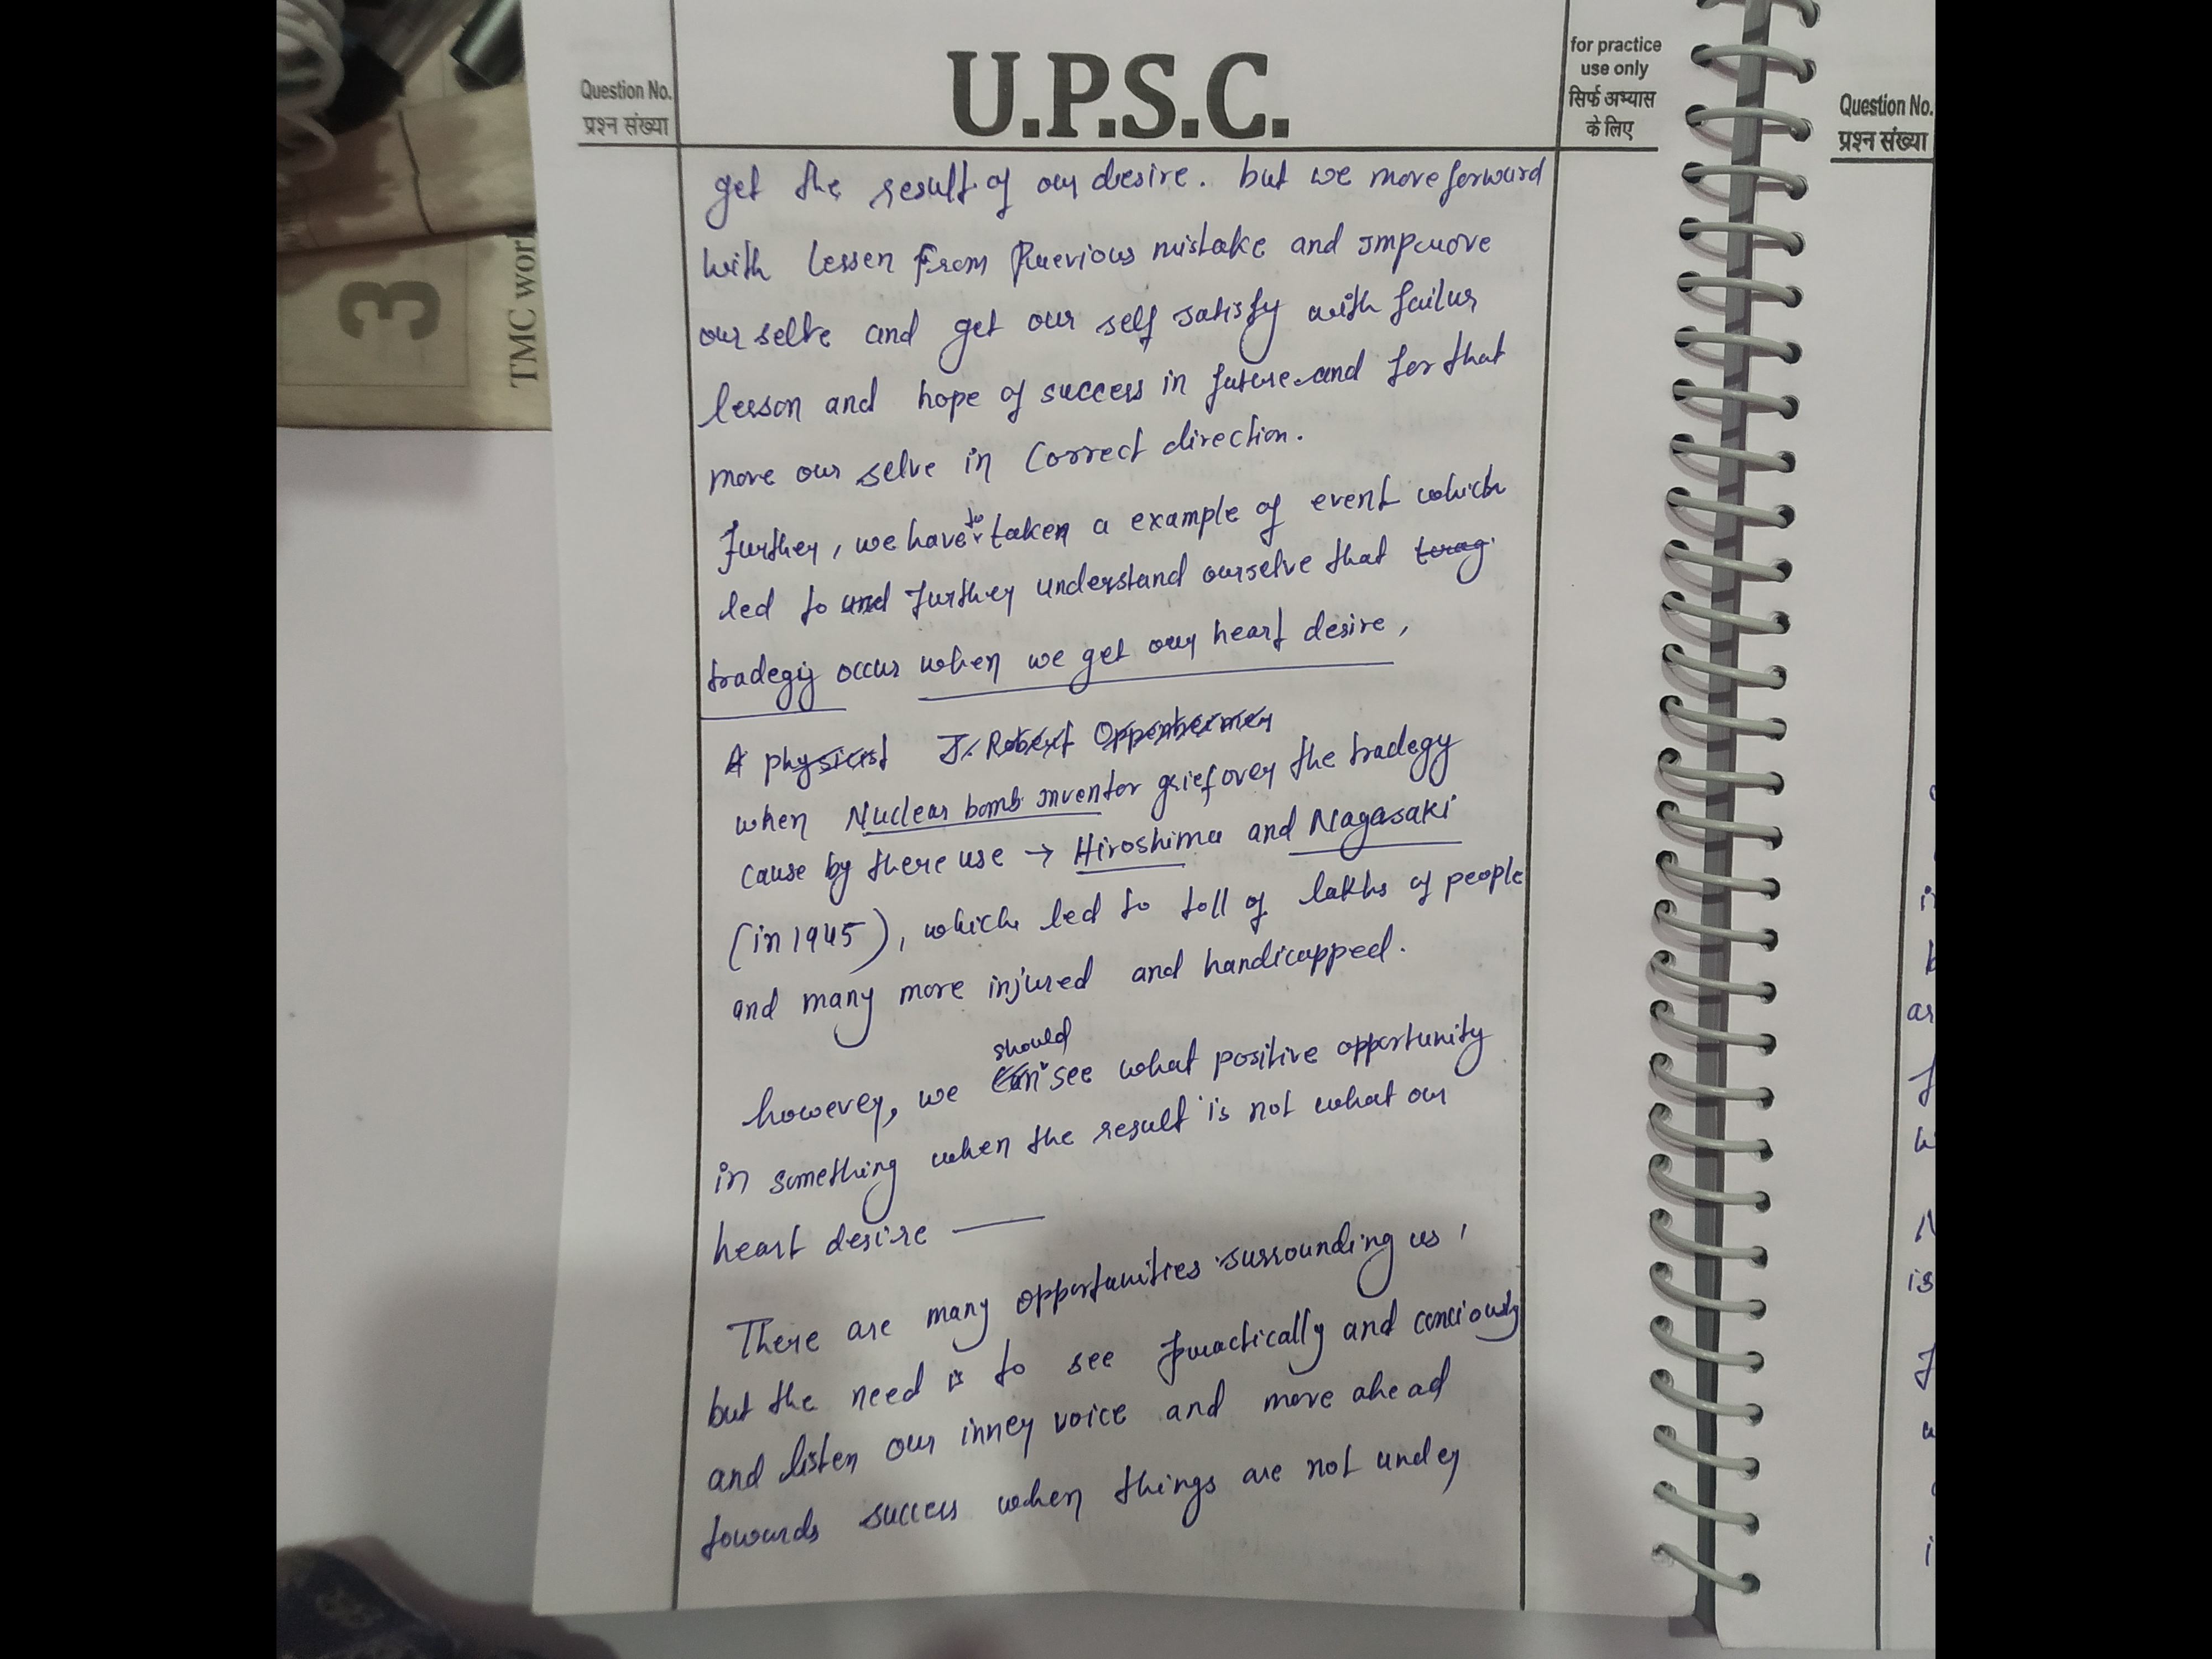 Question No.
प्रश्न संख्या
U.P.S.C.
for practice
use only
सिर्फ अभ्यास
के लिए
get the result of our desire. but we move forward
with lessen From Previous mistake and improve
our selve and get our self satisfy with failur
lesson and hope of success in future and for that
move our selve in correct direction.
Further, we have to taken a example of event which
led to und further understand ourselve that trag
tradegy occur when we get our heart desire,
A physicist J. Robert Oppenheimer
when Nuclear bomb inventor grief over the tradegy
cause by there use → Hiroshima and Nagasaki
(in 1945), which led to toll of lakhs of people
and many more injured and handicapped.
however, we can should see what positive opportunity
in something when the result is not what our
heart desire —
There are many opportunities surrounding us,
but the need is to see practically and conciously
and listen our inner voice and move ahead
towards success when things are not under
3
TMC wor
Question No.
प्रश्न संख्या